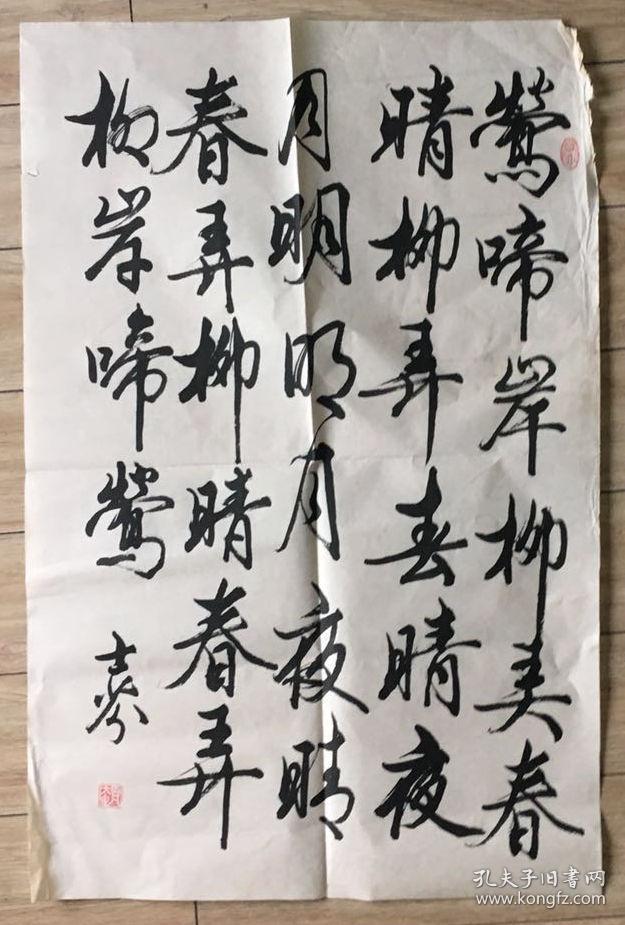 鶯啼岸柳弄春
晴柳弄春晴夜
月明明月夜晴
春弄柳晴春弄
柳岸啼鶯
孔夫子旧書网
www.kongfz.com